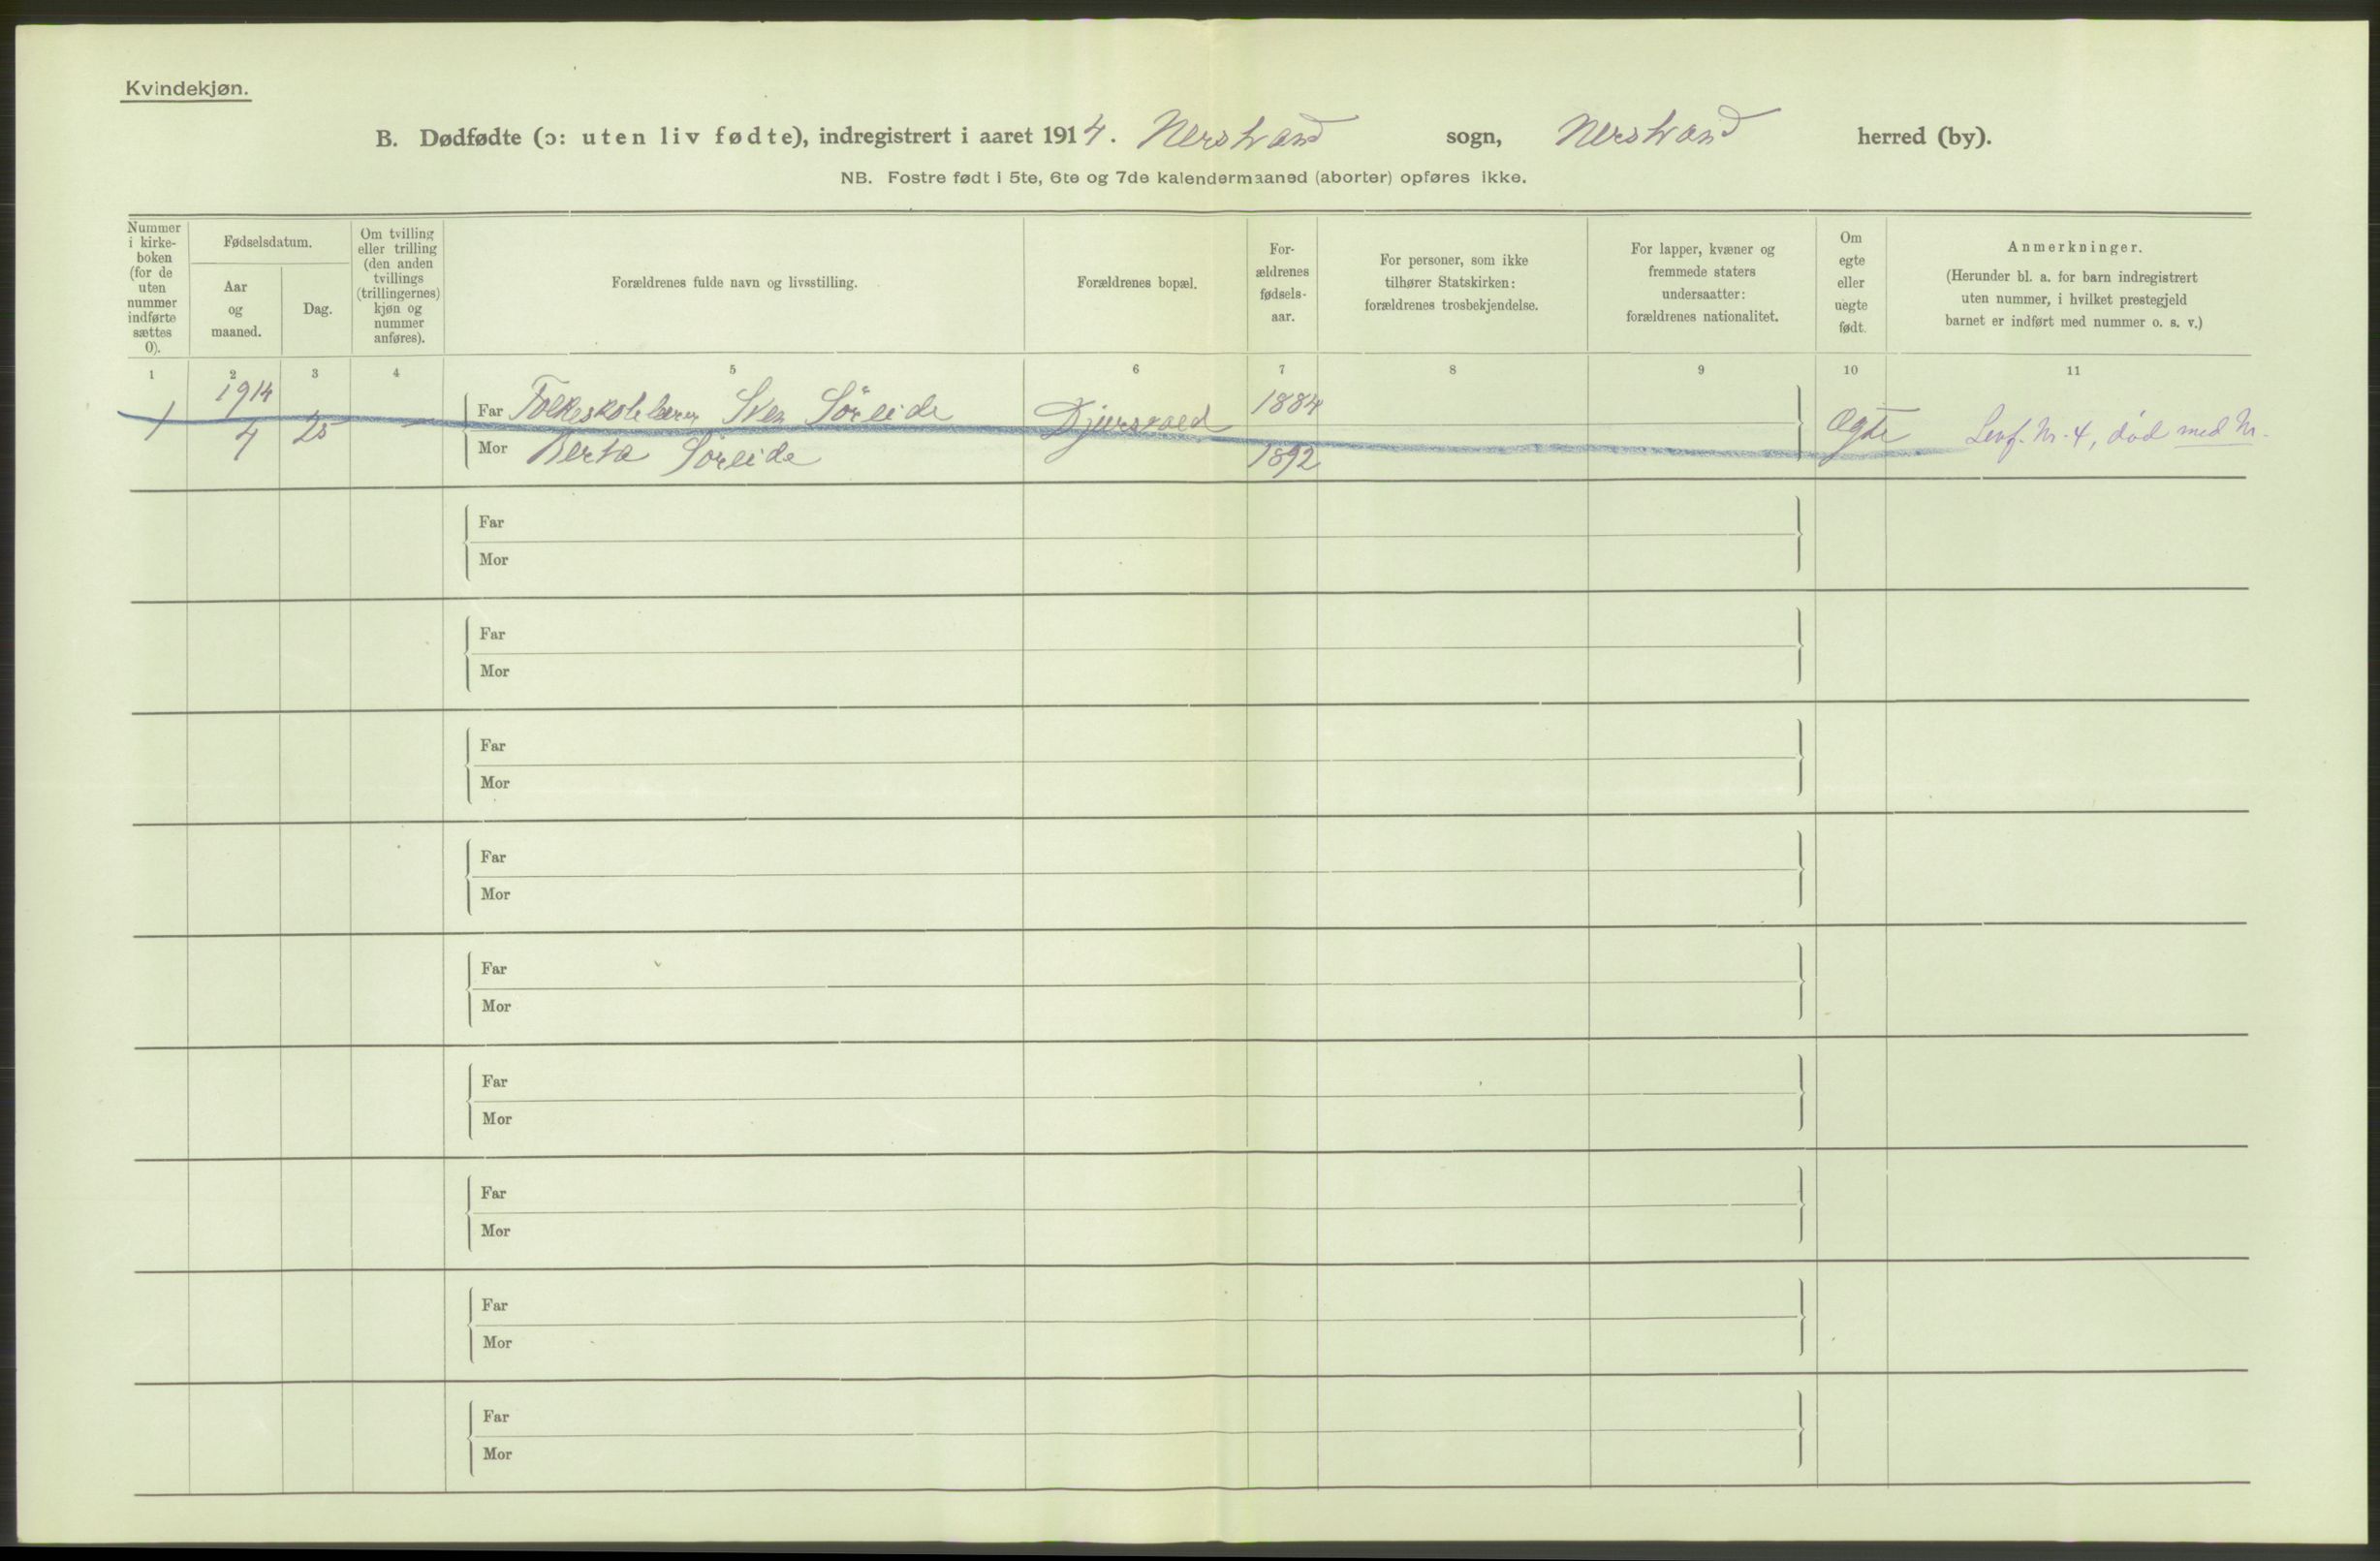 Kvindekjøn.
B. Dødfødte (ɔ: uten liv fødte), indregistrert i aaret 1914. Nerstrand sogn, Nerstrand herred (by).
NB. Fostre født i 5te, 6te og 7de kalendermaaned (aborter) opføres ikke.
Nummer
i kirke-
boken
(for de
uten
nummer
indførte
sættes
0).
Fødselsdatum.
Aar
og
maaned.
Dag.
Om tvilling
eller trilling
(den anden
tvillings
(trillingernes)
kjøn og
nummer
anføres).
Forældrenes fulde navn og livsstilling.
Forældrenes bopæl.
For-
ældrenes
fødsels-
aar.
For personer, som ikke
tilhører Statskirken:
forældrenes trosbekjendelse.
For lapper, kvæner og
fremmede staters
undersaatter:
forældrenes nationalitet.
Om
egte
eller
uegte
født.
Anmerkninger.
(Herunder bl. a. for barn indregistrert
uten nummer, i hvilket prestegjeld
barnet er indført med nummer o. s. v.)
1 2 3 4 5 6 7 8 9 10 11
1914
1 4 25 –
Far Folkeskolelærer Sven Söreide 1884
Mor Berta Söreide 1892
Ægte
Levf. Nr. 4, död med Nr.
Far
Mor
Far
Mor
Far
Mor
Far
Mor
Far
Mor
Far
Mor
Far
Mor
Far
Mor
Far
Mor